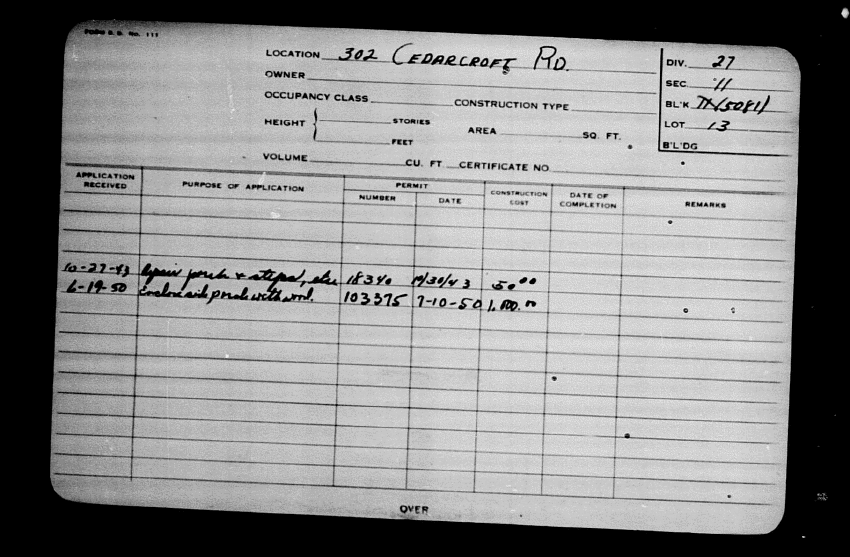 FORM B.B. No. 111
LOCATION 302 CEDARCROFT RD.
DIV. 27
OWNER
SEC. 11
OCCUPANCY CLASS CONSTRUCTION TYPE
BL'K (5081)
HEIGHT { STORIES AREA SQ. FT.
FEET
LOT 13
B'L'DG
VOLUME CU. FT. CERTIFICATE NO.
APPLICATION RECEIVED PURPOSE OF APPLICATION PERMIT NUMBER DATE CONSTRUCTION COST DATE OF COMPLETION REMARKS
10-27-43 Repair porch & steps, etc 18340 10/30/43 50.00
6-19-50 Enclose side porch with wood. 103375 7-10-50 1,000.00
OVER